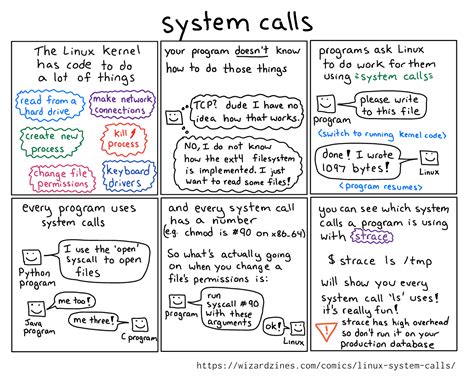 system calls
The Linux Kernel
has code to do
a lot of things
read from a
hard drive
make network
connections
create new
process
kill
process
change file
permissions
keyboard
drivers
your program doesn't know
how to do those things
TCP? dude I have no
idea how that works.
program
NO, I do not know
how the ext4 filesystem
is implemented. I just
want to read some files!
programs ask Linux
to do work for them
using system calls
please write
to this file
program
<switch to running kernel code>
done! I wrote
1097 bytes!
Linux
<program resumes>
every program uses
system calls
I use the 'open'
syscall to open
files
Python
program
me too!
Java
program
me three!
C program
and every system call
has a number
(e.g. chmod is #90 on x86-64)
So what's actually going
on when you change a
file's permissions is:
run
syscall #90
with these
arguments
program
ok!
Linux
you can see which system
calls a program is using
with strace
$ strace ls /tmp
will show you every
system call 'ls' uses!
it's really fun!
strace has high overhead
so don't run it on your
production database
https://wizardzines.com/comics/linux-system-calls/